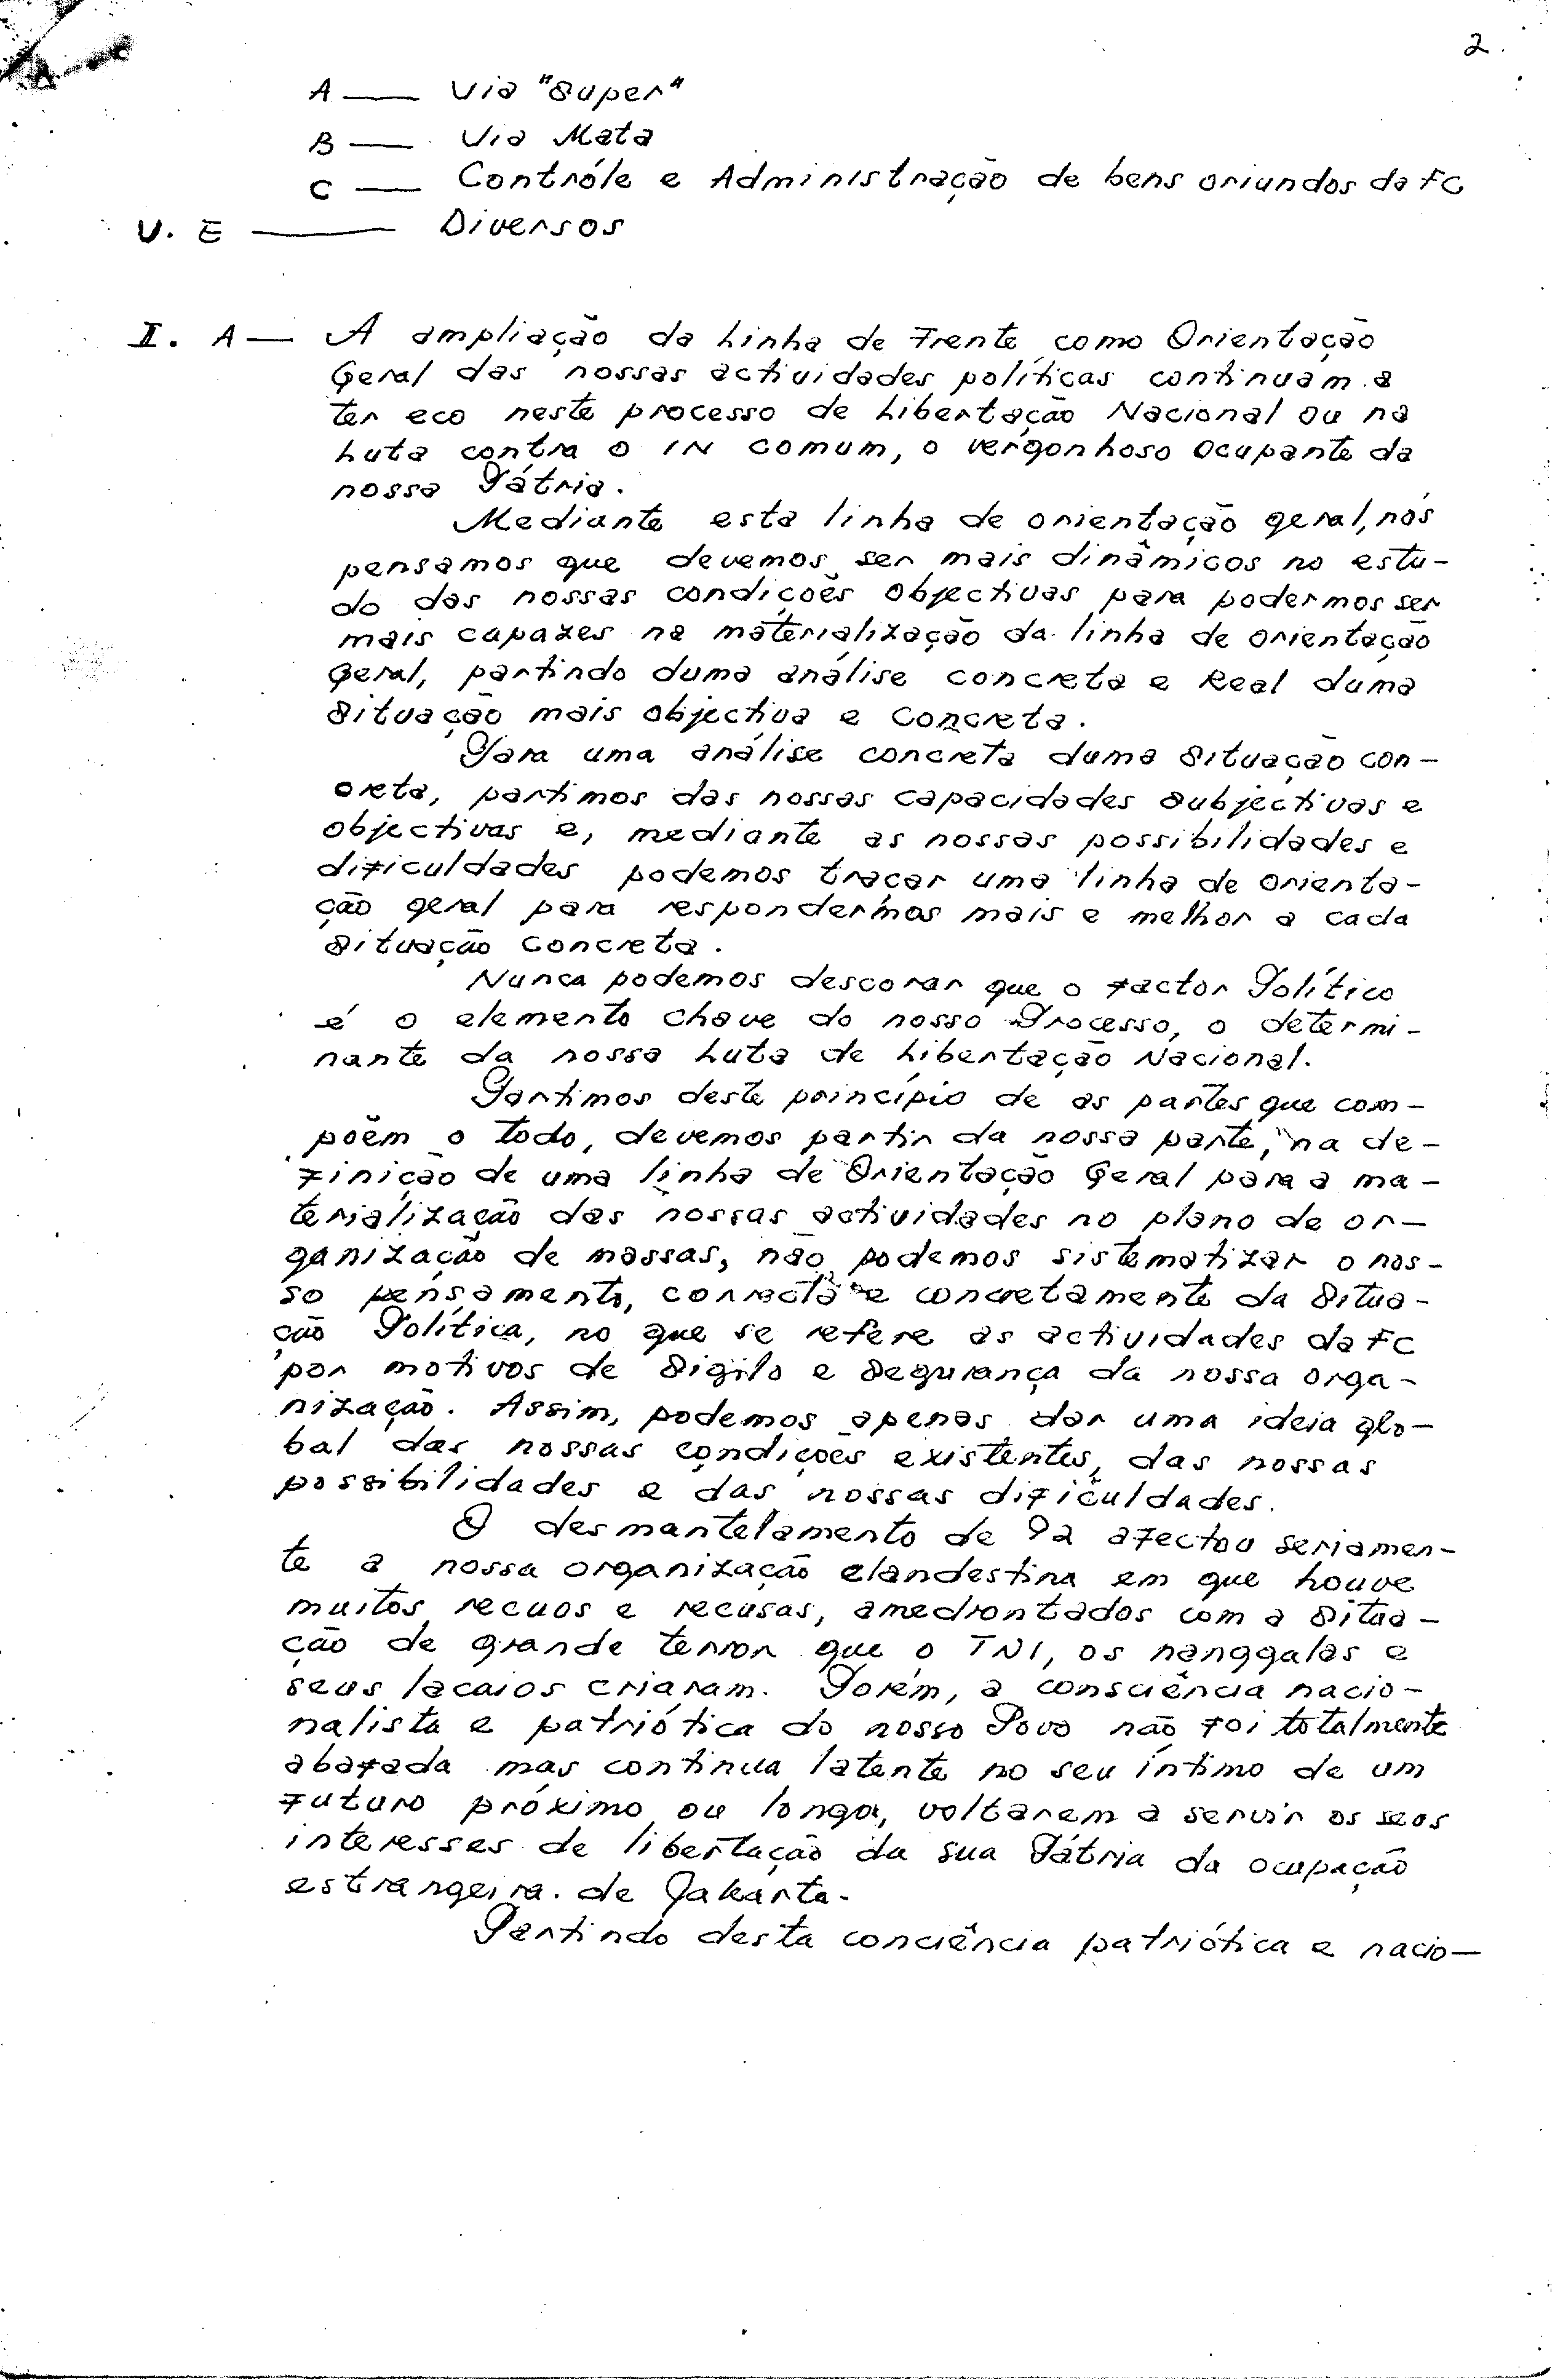 2.
A — Via "Super"
B — Via Mata
C — Contróle e Administração de bens oriundos da FC
V. E — Diversos
I. A — A ampliação da Linha de Frente como Orientação
Geral das nossas actividades políticas continuam a
ter eco neste processo de Libertação Nacional ou na
Luta contra o IN comum, o vergonhoso ocupante da
nossa Pátria.
Mediante esta linha de orientação geral, nós
pensamos que devemos ser mais dinâmicos no estu-
do das nossas condições objectivas para podermos ser
mais capazes na materialização da linha de orientação
geral, partindo duma análise concreta e Real duma
situação mais objectiva e concreta.
Para uma análise concreta duma situação con-
creta, partimos das nossas capacidades subjectivas e
objectivas e, mediante as nossas possibilidades e
dificuldades podemos traçar uma linha de orienta-
ção geral para respondermos mais e melhor a cada
situação concreta.
Nunca podemos descorar que o factor Político
é o elemento chave do nosso Processo, o determi-
nante da nossa Luta de Libertação Nacional.
Partimos deste princípio de as partes que com-
põem o todo, devemos partir da nossa parte, na de-
finição de uma linha de Orientação Geral para a ma-
terialização das nossas actividades no plano de or-
ganização de massas, não podemos sistematizar o nos-
so pensamento, correcta e concretamente da situa-
ção Política, no que se refere as actividades da FC
por motivos de sigilo e segurança da nossa orga-
nização. Assim, podemos apenas dar uma ideia glo-
bal das nossas condições existentes, das nossas
possibilidades e das nossas dificuldades.
O desmantelamento de 92 afectou seriamen-
te a nossa organização clandestina em que houve
muitos recuos e recusas, amedrontados com a situa-
ção de grande terror que o TNI, os nanggalas e
seus lacaios criaram. Porém, a consciência nacio-
nalista e patriótica do nosso Povo não foi totalmente
abafada mas continua latente no seu íntimo de um
futuro próximo ou longo, voltarem a servir os seos
interesses de libertação da sua Pátria da ocupação
estrangeira. de Jakarta.
Partindo desta conciência patriótica e nacio-